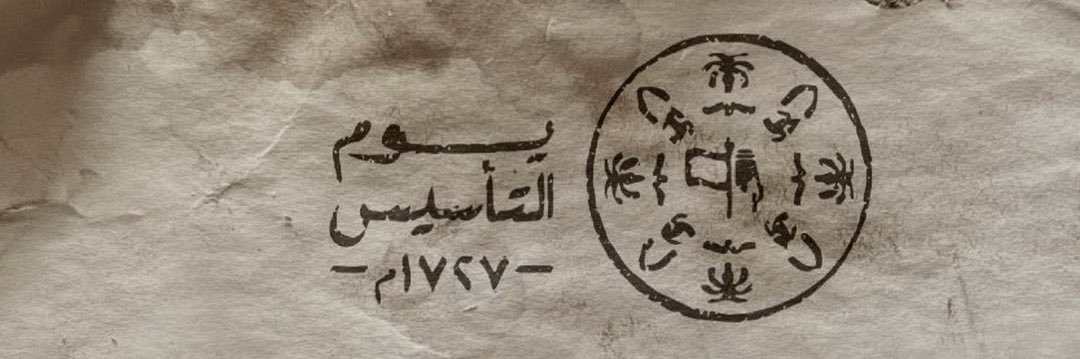 يوم
التأسيس
- ١٧٢٧م -